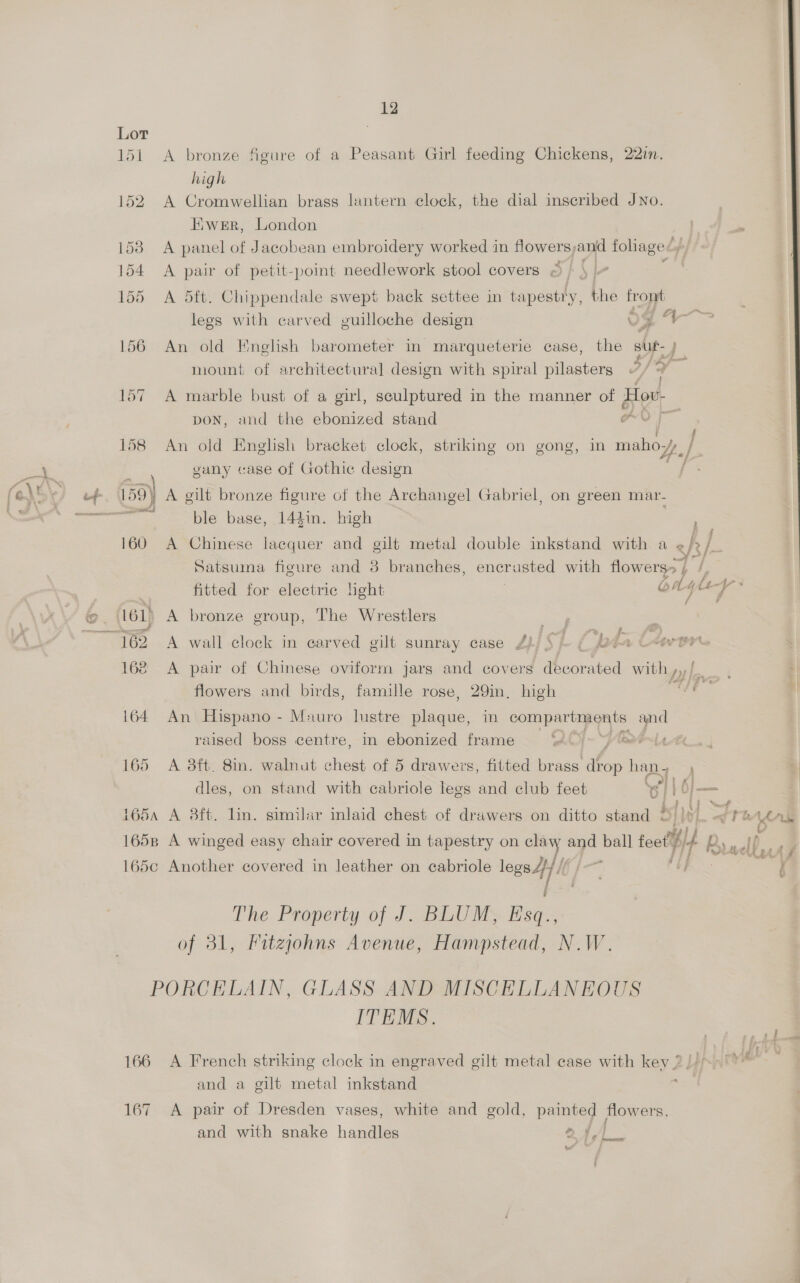 12
Lot
151 A bronze figure of a Peasant Girl feeding Chickens, 22in.
high
152 A Cromwellian brass lantern clock, the dial inscribed JNO.
EWER, London
153 A panel of Jacobean embroidery worked in flowers and foliage
154 A pair of petit-point needlework stool covers
155 A 5ft. Chippendale swept back settee in tapestry, the front
legs with carved guilloche design
156 An old English barometer in marqueterie case, the sur-
mount of architectural design with spiral pilasters
157 A marble bust of a girl, sculptured in the manner of HOU-
DON, and the ebonized stand
158 An old English bracket clock, striking on gong, in maho-
gany case of Gothic design
159 A gilt bronze figure of the Archangel Gabriel, on green mar-
ble base, 14½in. high
160 A Chinese lacquer and gilt metal double inkstand with a
Satsuma figure and 3 branches, encrusted with flowers,
fitted for electric light
161 A bronze group, The Wrestlers
162 A wall clock in carved gilt sunray case
163 A pair of Chinese oviform jars and covers decorated with
flowers and birds, famille rose, 29in. high
164 An Hispano-Mauro lustre plaque, in compartments and
raised boss centre, in ebonized frame
165 A 3ft. 8in. walnut chest of 5 drawers, fitted brass drop han-
dles, on stand with cabriole legs and club feet
165A A 3ft. 1in. similar inlaid chest of drawers on ditto stand
165B A winged easy chair covered in tapestry on claw and ball feet
165C Another covered in leather on cabriole legs
The Property of J. BLUM, Esq.,
of 31, Fitzjohns Avenue, Hampstead, N.W.
PORCELAIN, GLASS AND MISCELLANEOUS
ITEMS.
166 A French striking clock in engraved gilt metal case with key
and a gilt metal inkstand
167 A pair of Dresden vases, white and gold, painted flowers,
and with snake handles